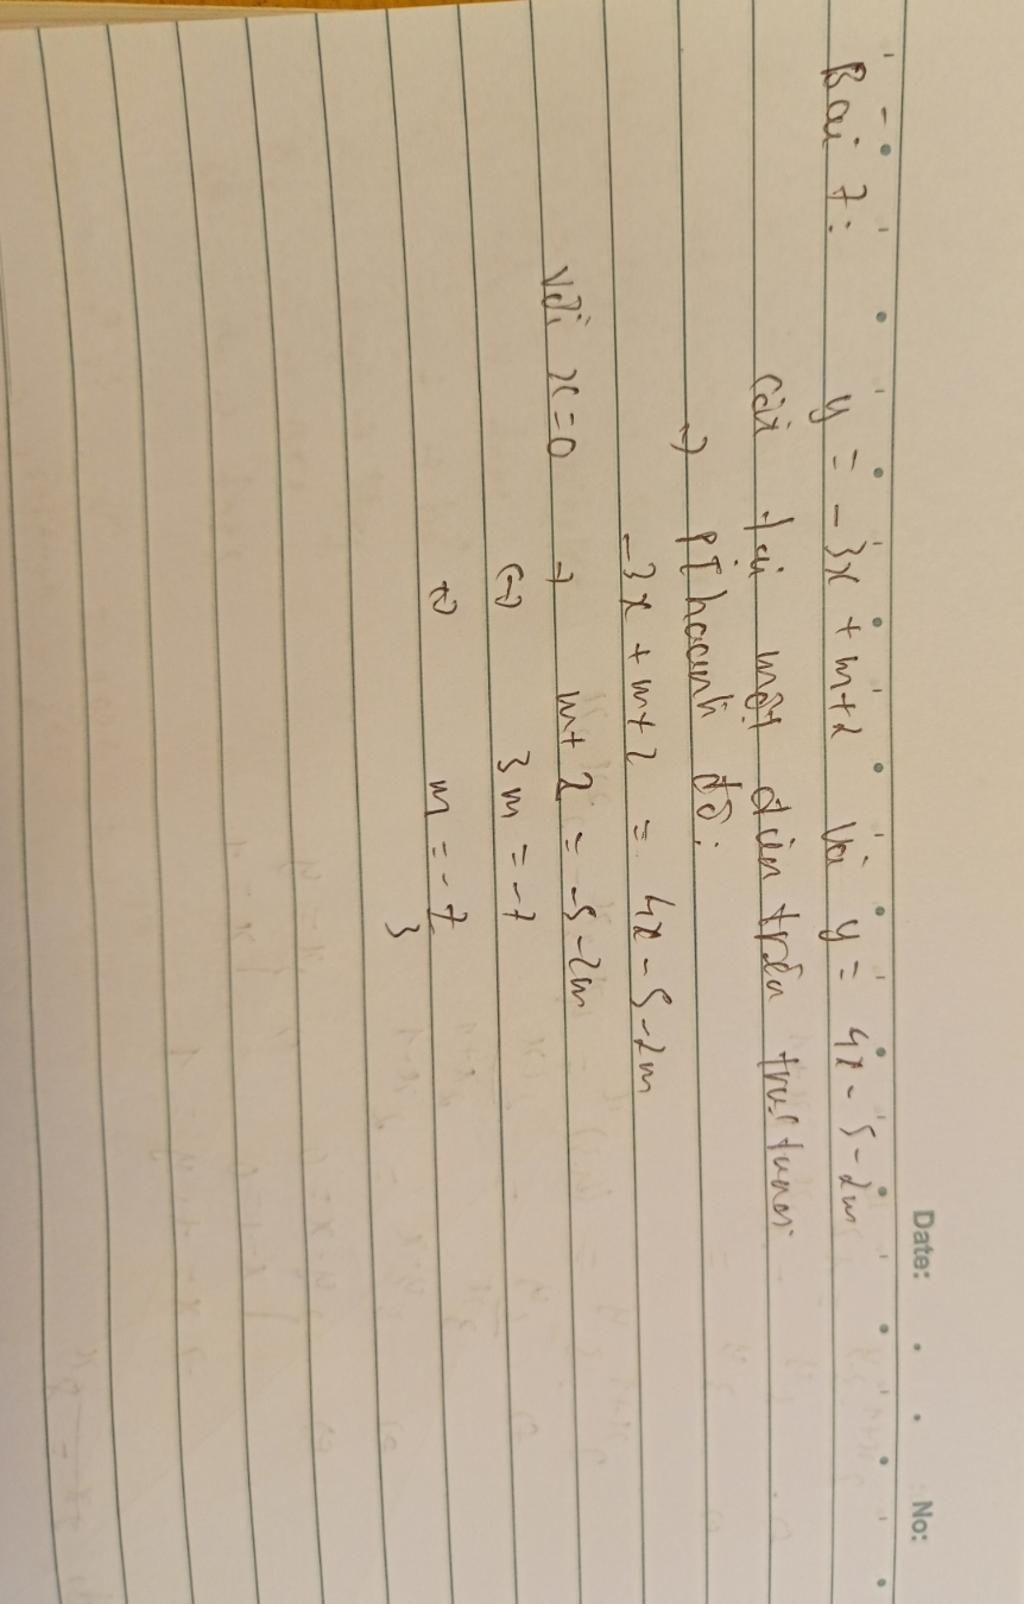 Date: No:
Bài 7: y = -3x + m+2 và y = 4x - 5-2m
cắt tại một điểm trên trục tung.
→ PT hoành độ:
-3x + m+2 = 4x - 5-2m
Với x=0 → m+2 = -5-2m
(=) 3m = -7
(=) m = -7/3